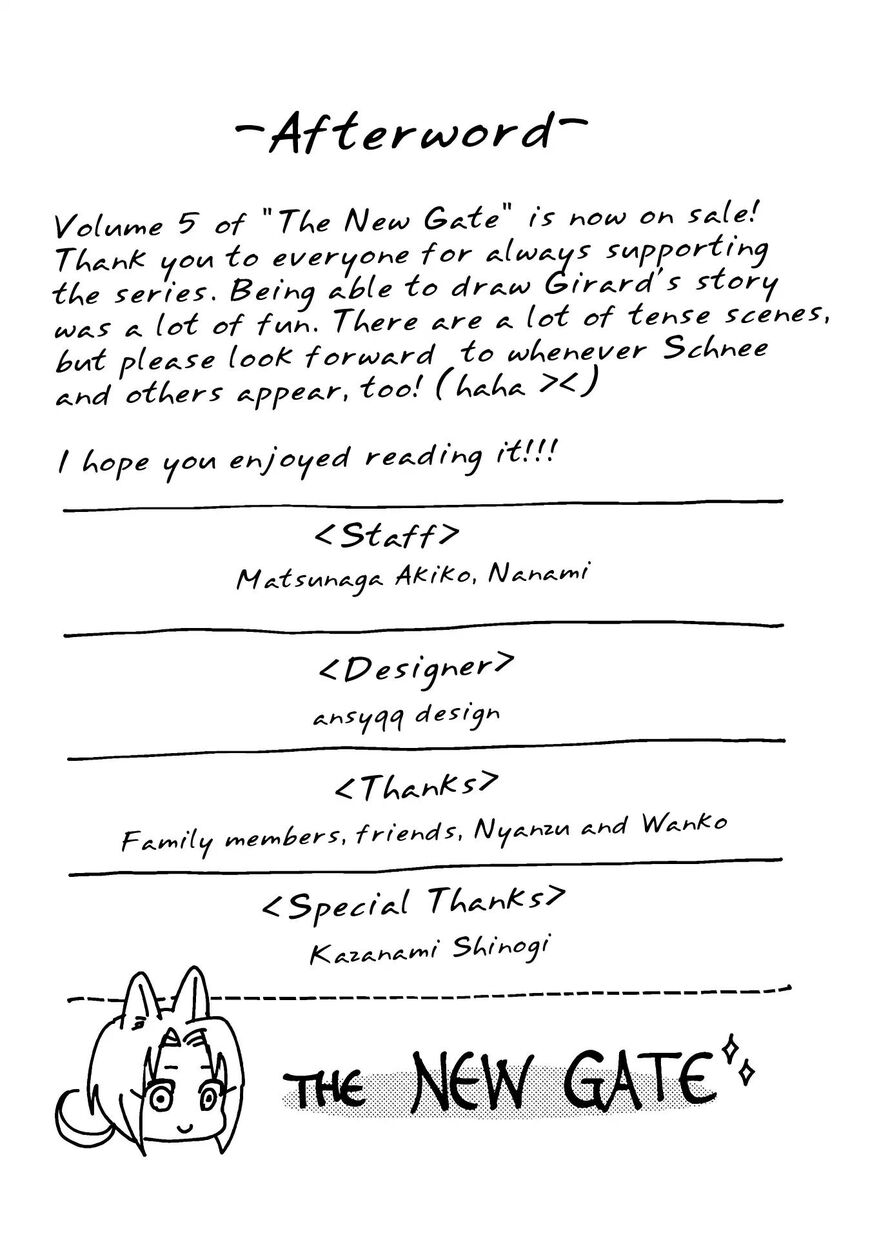 -Afterword-
Volume 5 of "The New Gate" is now on sale!
Thank you to everyone for always supporting
the series. Being able to draw Girard's story
was a lot of fun. There are a lot of tense scenes,
but please look forward to whenever Schnee
and others appear, too! (haha ><)
I hope you enjoyed reading it!!!
<Staff>
Matsunaga Akiko, Nanami
<Designer>
ansyqq design
<Thanks>
Family members, friends, Nyanzu and Wanko
<Special Thanks>
Kazanami Shinogi
THE NEW GATE